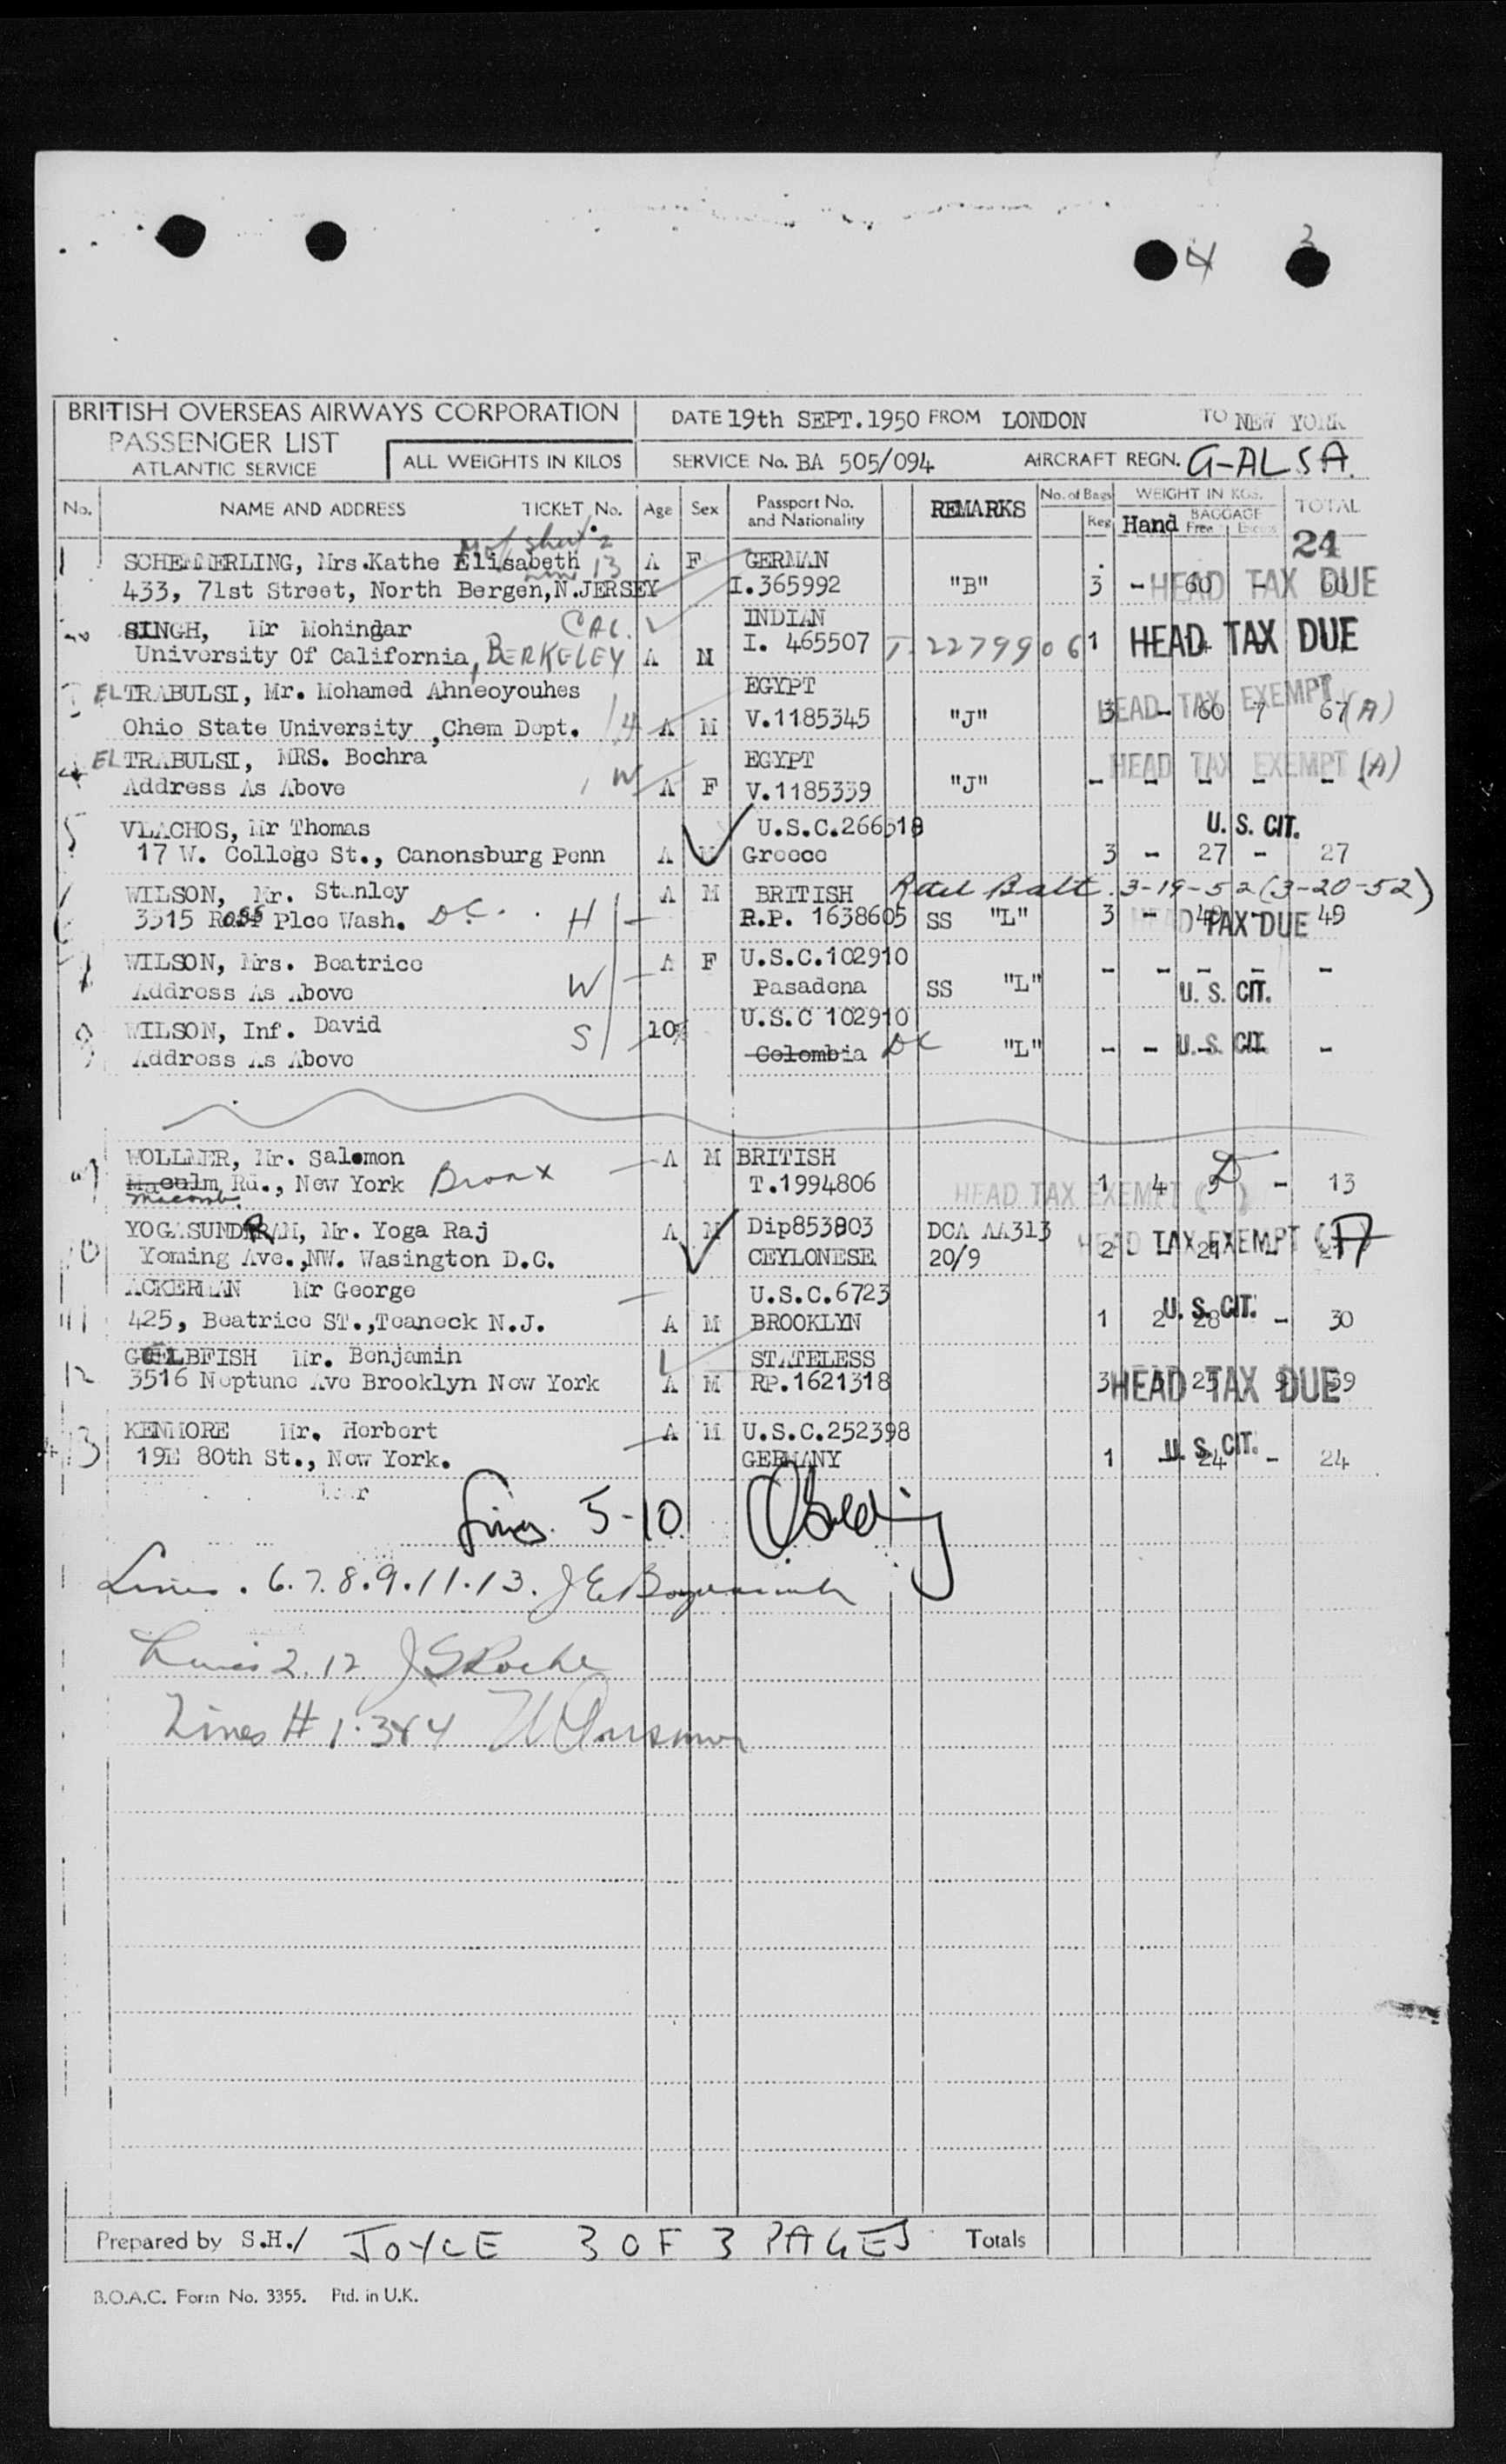 4 3
BRITISH OVERSEAS AIRWAYS CORPORATION
PASSENGER LIST
ATLANTIC SERVICE
ALL WEIGHTS IN KILOS
DATE 19th SEPT.1950 FROM LONDON TO NEW YORK
SERVICE No. BA 505/094 AIRCRAFT REGN. G-ALSA.
No. NAME AND ADDRESS TICKET No. Age Sex Passport No. and Nationality REMARKS No. of Bags Reg WEIGHT IN KGS. Hand BAGGAGE Free Excess TOTAL
24
1 SCHEMMERLING, Mrs.Kathe Elisabeth 13 A F GERMAN
433, 71st Street, North Bergen,N.JERSEY I.365992 "B" 3 - 60 - 60 HEAD TAX DUE
SINGH, Mr Mohindar CAL. INDIAN
University Of California, BERKELEY A M I. 465507 T-2279906 1 HEAD TAX DUE
EL TRABULSI, Mr. Mohamed Ahneoyouhes EGYPT HEAD TAX EXEMPT (A)
Ohio State University ,Chem Dept. A M V.1185345 "J" 3 - 60 7 67
4 EL TRABULSI, MRS. Bochra EGYPT HEAD TAX EXEMPT (A)
Address As Above W A F V.1185339 "J" - - - - -
5 VLACHOS, Mr Thomas U.S.C.266618 U.S. CIT.
17 W. College St., Canonsburg Penn A M Greece 3 - 27 - 27
WILSON, Mr. Stanley A M BRITISH Balt. 3-19-52 (3-20-52)
3515 Ross Plce Wash. D.C. H R.P. 1638605 SS "L" 3 - 49 - 49 HEAD TAX DUE
7 WILSON, Mrs. Beatrice A F U.S.C.102910 - - - - -
Address As Above W Pasadena SS "L" U.S. CIT.
8 WILSON, Inf. David 10 U.S.C 102910
Address As Above S Colombia DC "L" - - - - - U.S. CIT.
9 WOLLNER, Mr. Salomon A M BRITISH
Macoulm Rd., New York Bronx T.1994806 1 4 9 - 13 HEAD TAX EXEMPT ( )
Macombs
YOGASUNDRAM, Mr. Yoga Raj A M Dip853803 DCA AA313 HEAD TAX EXEMPT (A)
10 Yoming Ave.,NW. Wasington D.C. CEYLONESE 20/9 2
ACKERMAN Mr George U.S.C.6723 U.S. CIT.
11 425, Beatrice ST.,Teaneck N.J. A M BROOKLYN 1 2 28 - 30
GOELBFISH Mr. Benjamin STATELESS
12 3516 Neptune Ave Brooklyn New York A M RP.1621318 3 25 9 39 HEAD TAX DUE
KENMORE Mr. Herbert A M U.S.C.252398 U.S. CIT.
13 19E 80th St., New York. GERMANY 1 - 24 - 24
Lines. 5-10
Lines. 6.7.8.9.11.13.
Lines 2.12 JSRoche
Lines # 1.3&4
Prepared by S.H./ JOYCE 3 OF 3 PAGES Totals
B.O.A.C. Form No. 3355. Ptd. in U.K.